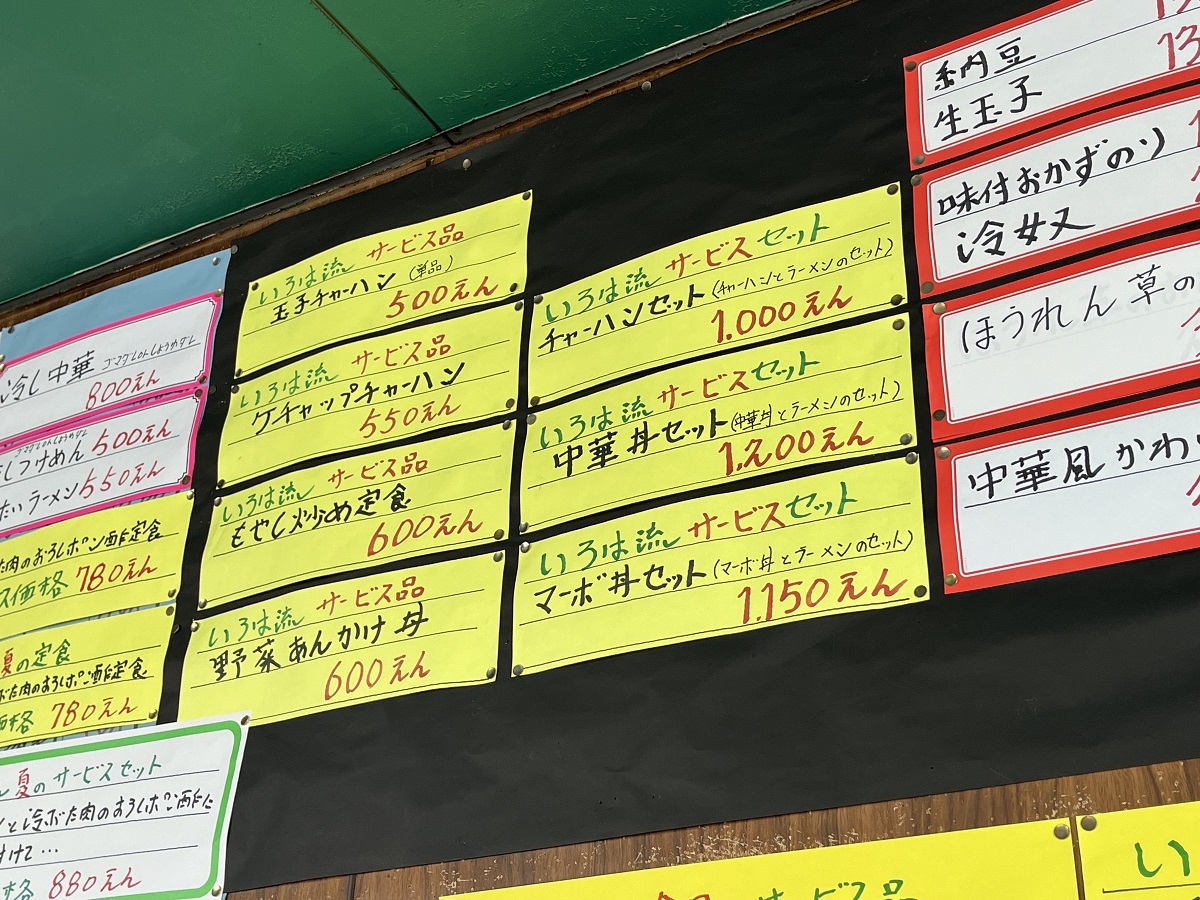 冷し中華
800えん
しつけめん 500えん
ラーメン 550えん
肉のおろしポン酢定食
価格 780えん
夏の定食
肉のおろしポン酢定食
価格 780えん
夏のサービスセット
と冷ぶた肉のおろしポン酢に
けて…
格 880えん
いろは流 サービス品
玉子チャーハン (単品)
500えん
いろは流 サービス品
ケチャップチャーハン
550えん
いろは流 サービス品
もやし炒め定食
600えん
いろは流 サービス品
野菜あんかけ丼
600えん
いろは流 サービスセット
チャーハンセット (チャーハンとラーメンのセット)
1.000えん
いろは流 サービスセット
中華丼セット (中華丼とラーメンのセット)
1.200えん
いろは流 サービスセット
マーボ丼セット (マーボ丼とラーメンのセット)
1.150えん
納豆
生玉子
味付おかずのり
冷奴
ほうれん草の
中華風かわ
サービス品
い